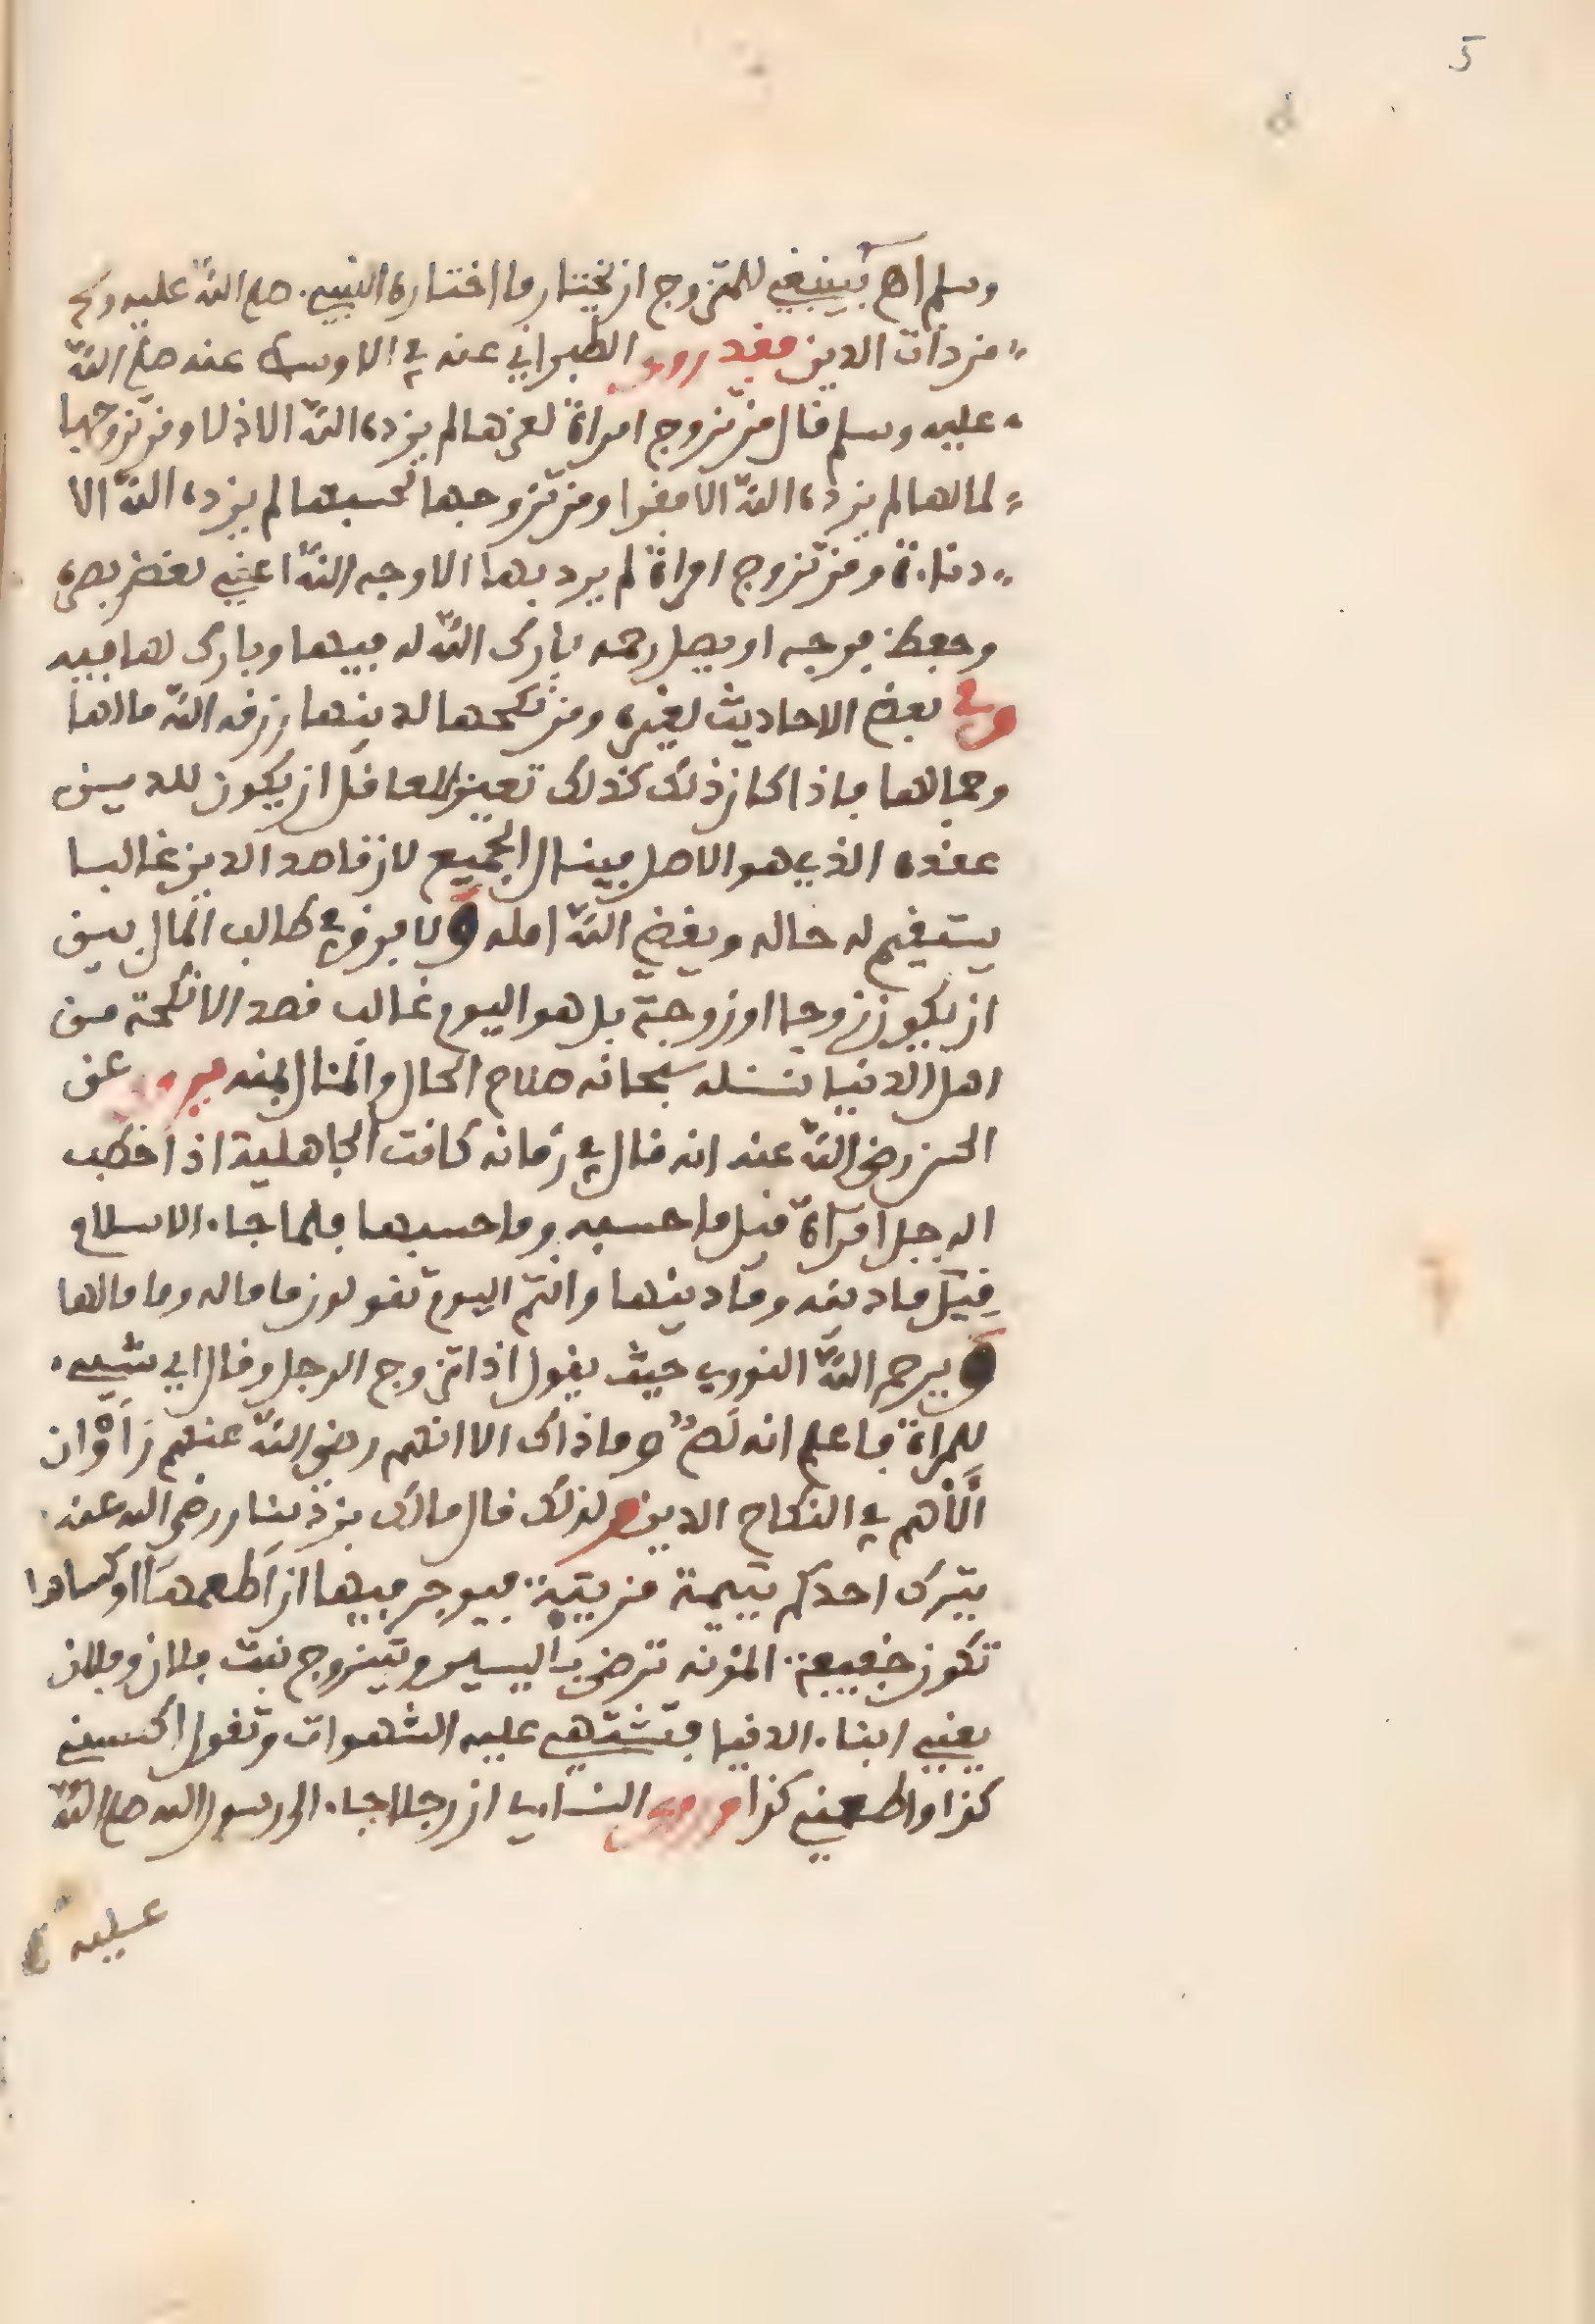 5
وسلم اهـ فينبغي للمتزوج ان يختار ما اختاره النبي صلى الله عليه وسلم
من ذات الدين فقد روى الطبراني عنه في الاوسط عنه صلى الله
عليه وسلم قال من تزوج امراة لعزها لم يزده الله الا ذلا ومن تزوجها
لمالها لم يزده الله الا فقرا ومن تزوجها لحسبها لم يزده الله الا
دناءة ومن تزوج امراة لم يرد بها الا وجه الله اعني لغض بصره
وحفظ فرجه او يصل رحمه بارك الله له فيها وبارك لها فيه
وفي بعض الاحاديث لغيره ومن نكحها لدينها رزقه الله مالها
وجمالها فاذا كان ذلك كذلك تعين للعاقل ان يكون للدين
عقده الذي هو الاصل فينال الجميع لان قاصد الدين غالبا
يستقيم له حاله ويقضي الله امله ولا فرق في طالب المال بين
ان يكون زوجا او زوجة بل هو اليوم غالب قصد الانكحة من
اهل الدنيا نسئله سبحانه صلاح الحال والمئال بمنه عن
الحسن رضي الله عنه انه قال في زمانه كانت الجاهلية اذا خطب
الرجل امراة قيل ما حسبه وما حسبها فلما جاء الاسلام
قيل ما دينه وما دينها وانتم اليوم تقولون ما ماله وما مالها
ويرحم الله الثوري حيث يقول اذا تزوج الرجل وقال اي شيء
للمراة فاعلم انه لص وما ذاك الا انهم رضي الله عنهم رأوا ان
الأهم في النكاح الدين ولذلك قال مالك بن دينار رضي الله عنه
يترك احدكم يتيمة فيوجر فيها ان اطعمها او كساها
تكون خفيفة المؤنه ترضى باليسير ويتزوج بنت فلان وفلان
يعني ابناء الدنيا فتشتهي عليه الشهوات وتقول اكسني
كذا واطعمني كذا وروى النساءي ان رجلا جاء الى رسول الله صلى الله
عليه